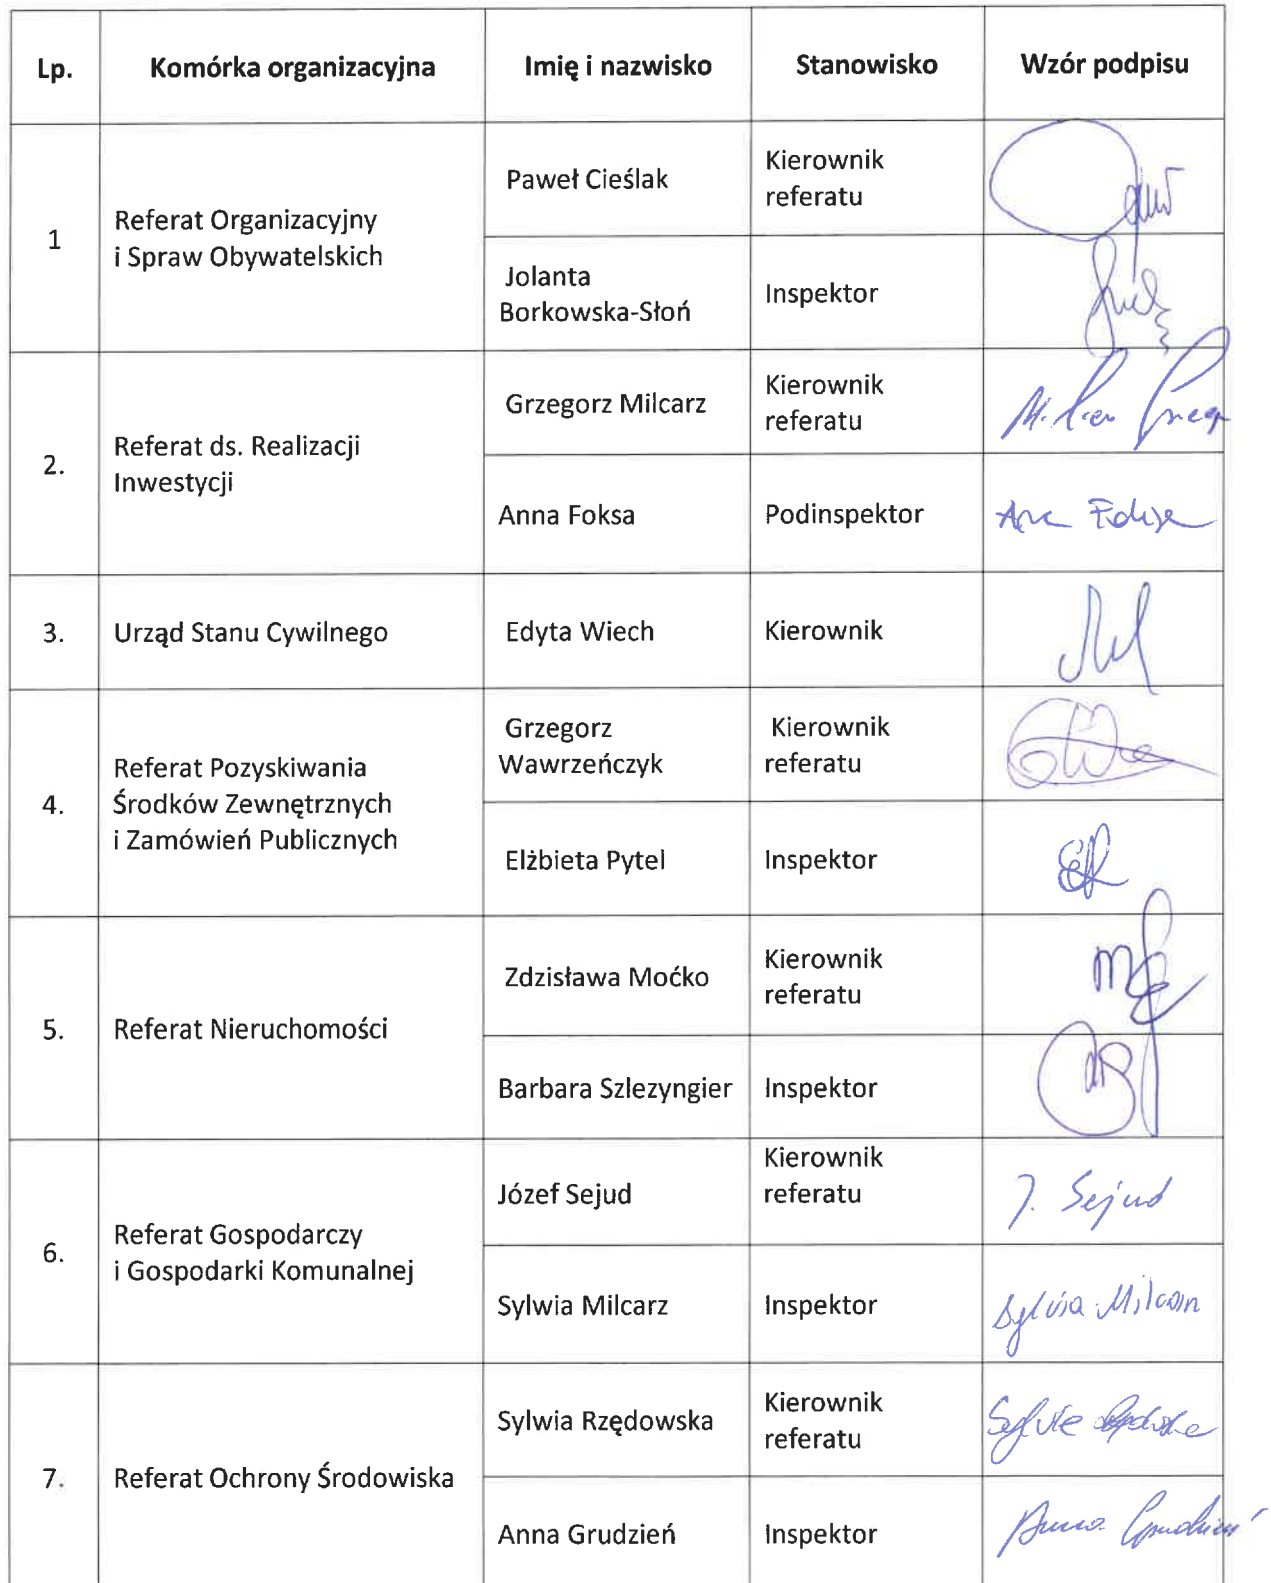 Lp.
Komórka organizacyjna
Imię i nazwisko
Stanowisko
Wzór podpisu
1
Referat Organizacyjny
i Spraw Obywatelskich
Paweł Cieślak
Kierownik
referatu
Jolanta
Borkowska-Słoń
Inspektor
2.
Referat ds. Realizacji
Inwestycji
Grzegorz Milcarz
Kierownik
referatu
Anna Foksa
Podinspektor
3.
Urząd Stanu Cywilnego
Edyta Wiech
Kierownik
4.
Referat Pozyskiwania
Środków Zewnętrznych
i Zamówień Publicznych
Grzegorz
Wawrzeńczyk
Kierownik
referatu
Elżbieta Pytel
Inspektor
5.
Referat Nieruchomości
Zdzisława Moćko
Kierownik
referatu
Barbara Szlezyngier
Inspektor
6.
Referat Gospodarczy
i Gospodarki Komunalnej
Józef Sejud
Kierownik
referatu
J. Sejud
Sylwia Milcarz
Inspektor
Sylwia Milcarz
7.
Referat Ochrony Środowiska
Sylwia Rzędowska
Kierownik
referatu
Anna Grudzień
Inspektor
Anna Grudzień